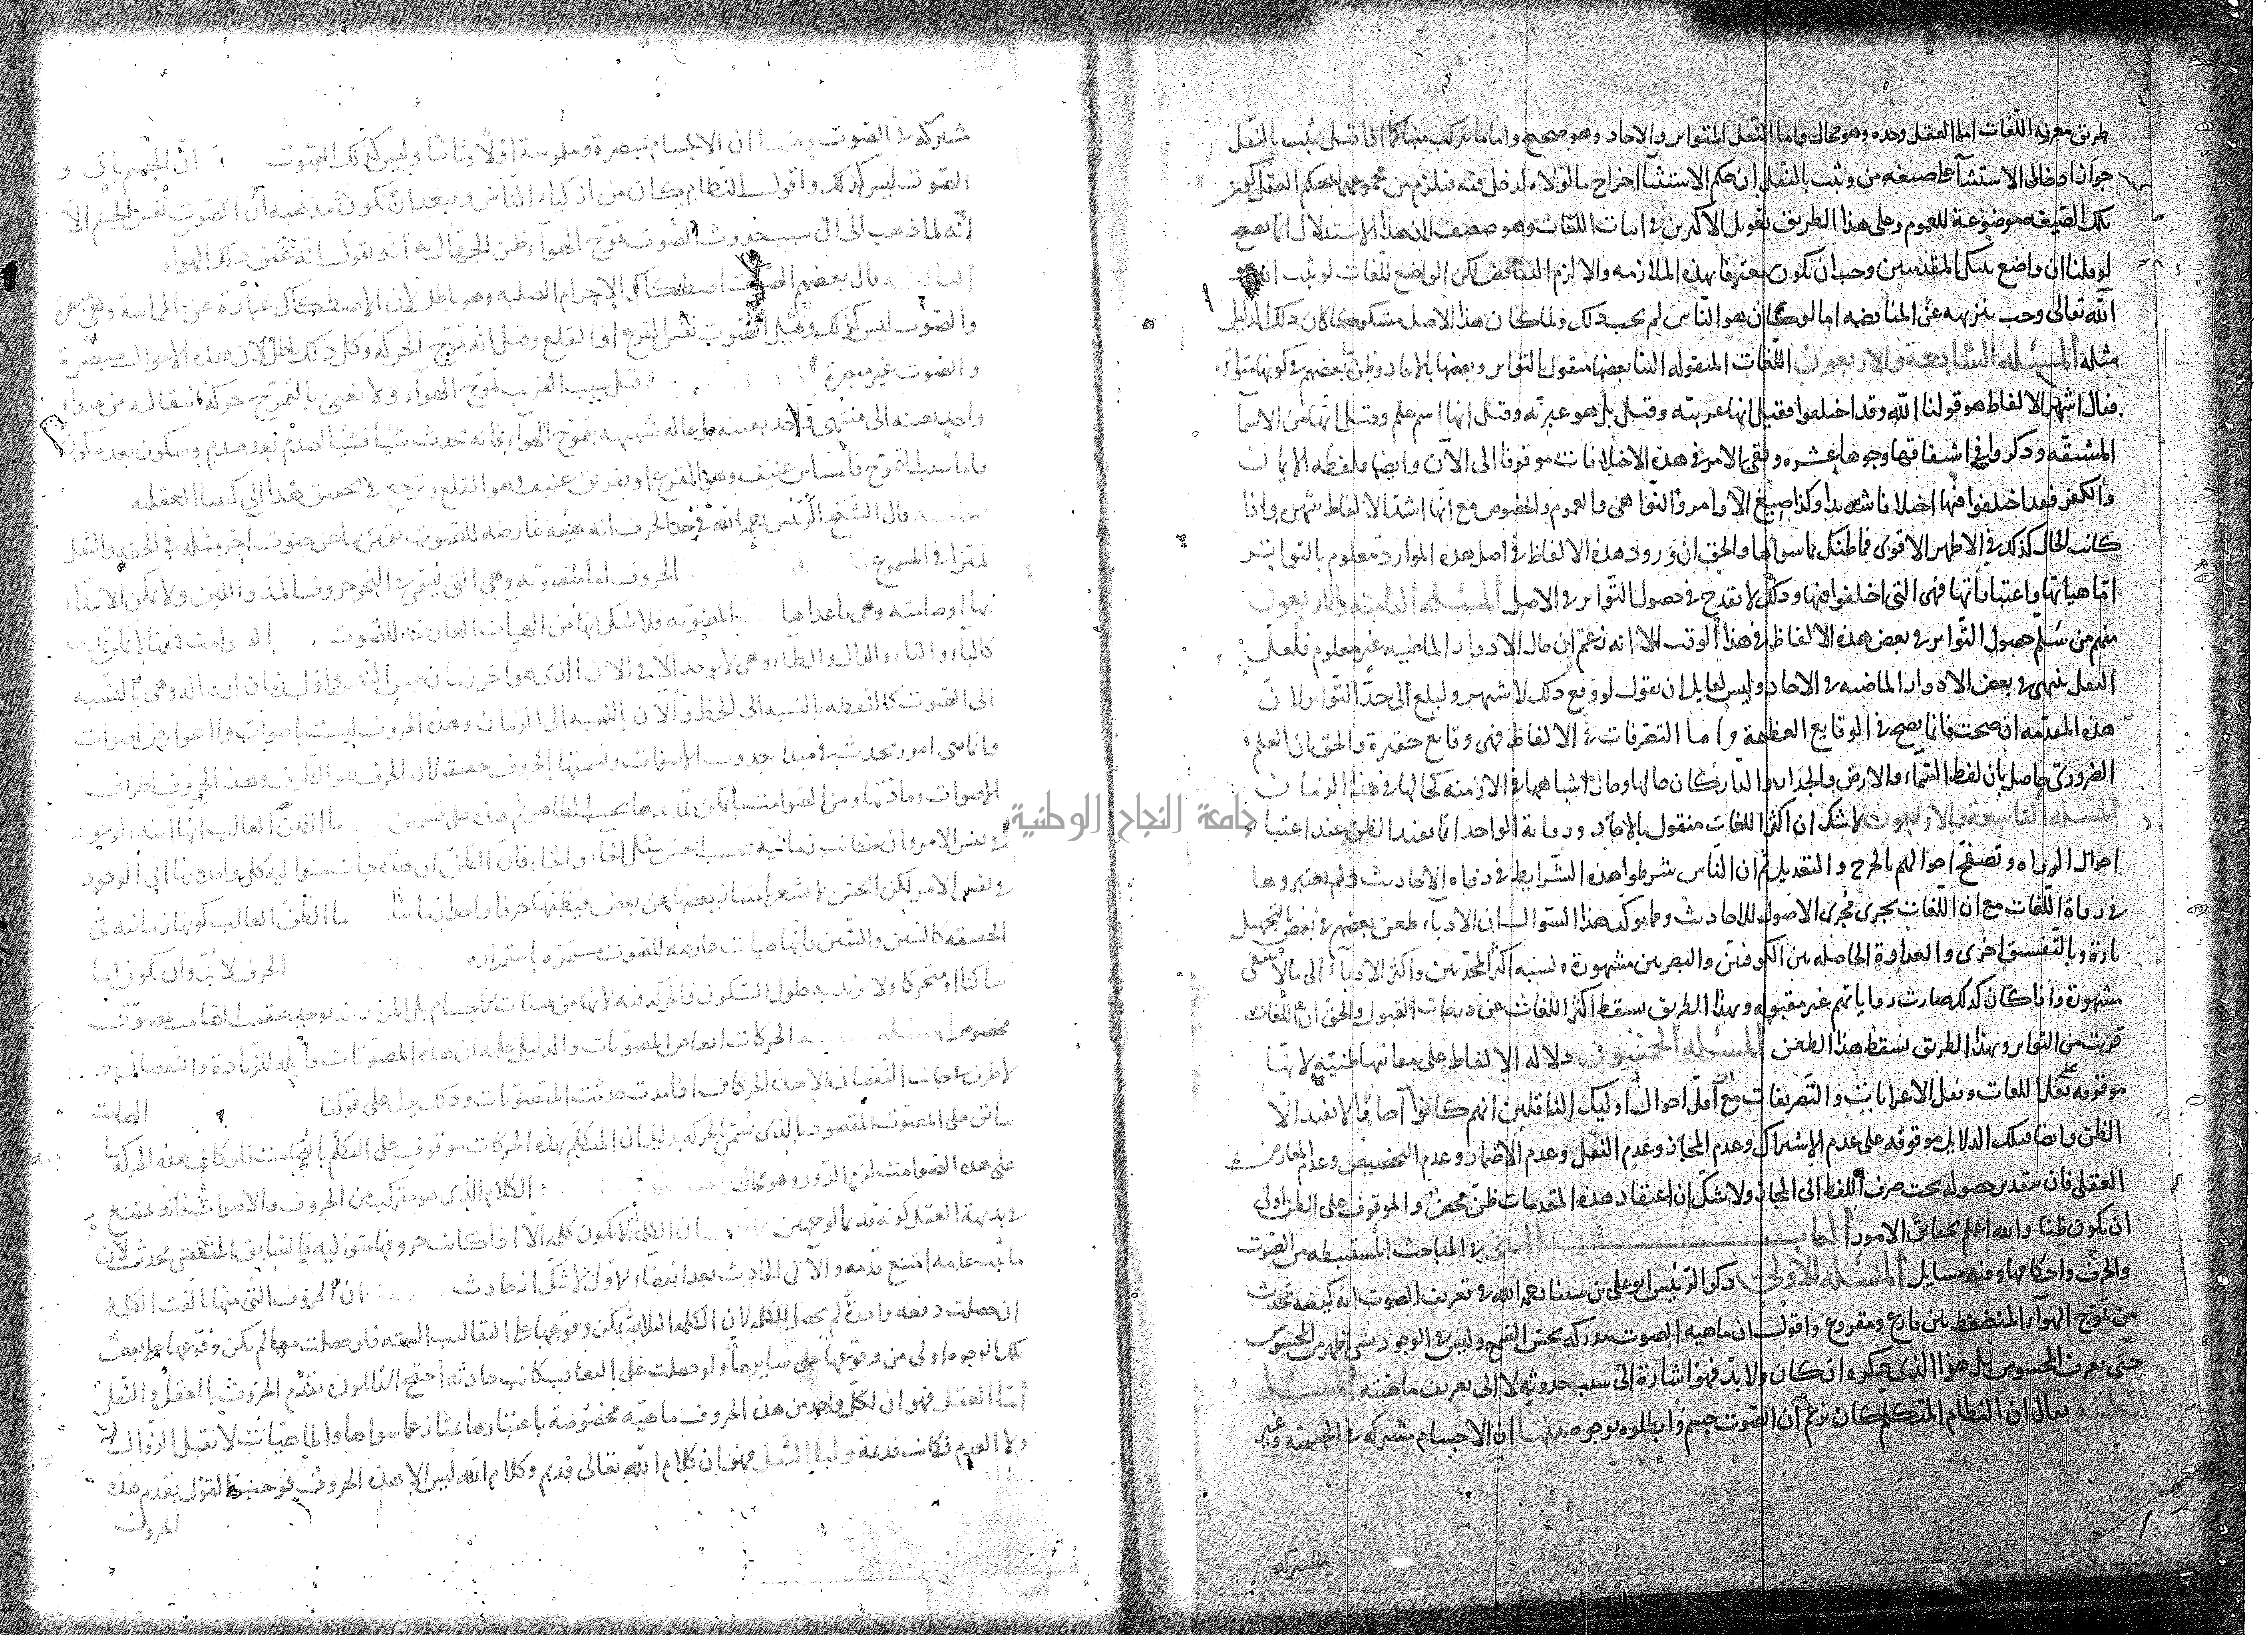 طريق معرفة اللغات اما العقل وحده وهو محال واما النقل المتواتر والاحاد وهو صحيح واما ما يتركب منهما كما اذا قيل ثبت بالنقل
جواز ادخال الاستثنآ على صيغة من وثبت بالنقل ان حكم الاستثنآ اخراج ما لولاه لدخل فيه فيلزم من مجموعهما بحكم العقل كون
تلك الصيغة موضوعة للعموم وعلى هذا الطريق تعويل الاكثرين في اثبات اللغات وهو ضعيف لان هذا الاستدلال انما يصح
لو قلنا ان واضع تينك المقدمتين وجب ان يكون معترفا بهذه الملازمة والا لزم التناقض لكن الواضع للغات لو ثبت انه هو
الله تعالى وجب تنزيهه عن المناقضة اما لو كان هو الناس لم يجب ذلك ولما كان هذا الاصل مشكوكا كان ذلك الدليل
مثله المسئلة السابعة والاربعون اللغات المنقولة الينا بعضها منقول بالتواتر وبعضها بالاحاد وطعن بعضهم في كونها متواترة
فقال اشهر الالفاظ هو قولنا الله وقد اختلفوا فقيل انها عربية وقيل بل هو عبرية وقيل انها اسم علم وقيل انها من الاسمآ
المشتقة وذكروا في اشتقاقها وجوها عشرة وبقى الامر في هذه الاختلافات موقوفا الى الآن وايضا فلفظة الايمان
والكفر فقد اختلفوا فيها اختلافا شديدا وكذا صيغ الاوامر والنواهى والعموم والخصوص مع انها اشد الالفاظ شهرة واذا
كانت الحال كذلك في الاظهر الاقوى فما ظنك بما سواها والحق ان ورود هذه الالفاظ في اصل هذه الموارد معلوم بالتواتر
امّا هياتها واعتباراتها فهى التى اختلفوا فيها وذلك لا يقدح في حصول التواتر في الاصل المسئلة الثامنة والاربعون
منهم من سلم حصول التواتر في بعض هذه الالفاظ في هذا الوقت الا انه زعم ان حال الادوار الماضية غير معلوم فلعل
النقل ينتهى في بعض الادوار الماضية الى الاحاد وليس لقايل ان يقول لو وقع ذلك لاشتهر ولبلغ الى حد التواتر لان
هذه المقدمة ان صحت فانما يصح في الوقايع العظيمة واما التصرفات في الالفاظ فهى وقايع حقيرة والحق ان العلم
الضرورى حاصل بان لفظ السماء والارض والجدار والدار كان حالها وحال اشباهها في الازمنة كحالها في هذا الزمان
المسئلة التاسعة والاربعون لا شك ان اكثر اللغات منقول بالاحاد ورواية الواحد انما يفيد الظن عند اعتبار
احوال الرواة وتصفح احوالهم بالجرح والتعديل ثم ان الناس شرطوا هذه الشرايط في رواة الاحاديث ولم يعتبروها
في رواة اللغات مع ان اللغات يجرى مجرى الاصول للاحاديث ومما يوكد هذا السوال ان الادباء طعن بعضهم في بعض بالتجهيل
تارة وبالتفسيق اخرى والعداوة الحاصلة بين الكوفيين والبصريين مشهورة ونسبة اكثر المحدثين واكثر الادباء الى ما لا ينبغى
مشهورة واذا كان كذلك صارت رواياتهم غير مقبولة وبهذا الطريق يسقط اكثر اللغات عن درجات القبول والحق ان اللغات
قربت من التواتر وبهذا الطريق يسقط هذا الطعن المسئلة الخمسون دلالة الالفاظ على معانيها ظنية لانها
موقوفة على نقل اللغات ونقل الاعرابات والتصريفات مع ان اول احوال اوليك الناقلين انهم كانوا آحادا لا يفيد الّا
الظن وايضا فتلك الدلايل موقوفة على عدم الاشتراك وعدم المجاز وعدم النقل وعدم الاضمار وعدم التخصيص وعدم المعارض
العقلى فان بتقدير حصوله يجب صرف اللفظ الى المجاز ولا شك ان اعتقاد هذه المقدمات ظن محض والموقوف على الظن اولى
ان يكون ظنيا والله اعلم بحقائق الامور الباب الثانى في المباحث المستنبطة من الصوت
والحرف واحكامها وفيه مسايل المسئلة الاولى ذكر الرئيس ابو على بن سينا رحمه الله في تعريف الصوت انه كيفية تحدث
من تموج الهواء المنضغط بين قارع ومقروع واقول ان ماهية الصوت مدركة بحس السمع وليس في الوجود شئ اظهر من المحسوس
حتى يعرف المحسوس به بل هذا الذى ذكروه ان كان ولا بد فهو اشارة الى سبب حدوثه لا الى تعريف ماهيته المسئلة
الثانية يقال ان النظام المتكلم كان يزعم ان الصوت جسم وابطلوه بوجوه منها ان الاجسام مشتركة في الجسمية وغير
مشتركه
مشتركة في الصوت ومنها ان الاجسام مبصرة وملموسة اوّلا وثانيا وليس كذلك الصوت انّ الجسم باق و
الصوت ليس كذلك واقول النظام كان من اذكياء الناس ويبعد ان يكون مذهبه ان الصوت نفس الجسم الّا
انه لما ذهب الى ان سبب حدوث الصوت تموج الهواء ظن الجهال به انه يقول انه عين ذلك الهواء
الثالثة قال بعضهم الصوت اصطكاك الاجرام الصلبة وهو باطل لان الاصطكاك عبارة عن المماسة وهى مبصرة
والصوت ليس كذلك وقيل الصوت نفس القرع او القلع وقيل انه تموج الحركة وكل ذلك باطل لان هذه الاحوال مبصرة
والصوت غير مبصرة قيل سببه القريب تموج الهواء ولا نعنى بالتموج حركة انتقالية من مبداء
واحد بعينه الى منتهى واحد بعينه بل حالة شبيهة بتموج الهواء فانه يحدث شيئا فشيئا لصدم بعد صدم وسكون بعد سكون
واما سبب التموج فامساس عنيف وهو القرع او تفريق عنيف وهو القلع ويرجع في تحقيق هذا الى كتبنا العقلية
قال الشيخ الرئيس رحمه الله في حد الحرف انه هيئة عارضة للصوت يتميز بها عن صوت آخر مثله في الخفة والثقل
تميزا في المسموع الحروف اما مصوتة وهى التى تسمى في النحو حروف المد واللين ولا يمكن الابتداء
بها او صامتة وهى ما عداها المصوتة فلا شك انها من الهيآت العارضة للصوت
كالباء والتاء والدال والطاء وهى لا توجد الّا في الآن الذى هو آخر زمان حبس النفس واول زمان ارساله وهى بالنسبة
الى الصوت كالنقطة بالنسبة الى الخط والآن بالنسبة الى الزمان وهذه الحروف ليست باصوات ولا عوارض اصوات
وانما هى امور تحدث في مبداء حدوث الاصوات وتسميتها بالحروف حسنة لان الحرف هو الطرف وهذه الحروف اطراف
الاصوات ومباديها ومن الصوامت ما يمكن تمديدها بحسب الظاهر ثم هذه على قسمين ما الظن الغالب انها آنية الوجود
في نفس الامر وان كانت زمانية بحسب الحس مثل الحاء والخاء فان الظن ان هذه جاءت متوالية كل واحد منها آنى الوجود
في نفس الامر لكن الحس لا يشعر بامتياز بعضها عن بعض فيظنها حرفا واحدا زمانيا ما الظن الغالب كونها زمانية في
الحقيقة كالسين والشين فانها هيات عارضة للصوت مستمرة باستمراره الحرف لا بد وان يكون اما
ساكنا او متحركا ولا نريد به حلول السكون والحركة فيه لانهما من صفات الاجسام بل المراد انه يوجد عقيب الصامت بصوت
مخصوص الحركات ابعاض المصوتات والدليل عليه ان هذه المصوتات قابلة للزيادة والنقصان
لا طرف في جانب النقصان الا هذه الحركات اذا مدت حدثت المصوتات وذلك يدل على قولنا الصامت
سابق على المصوت المقصور بالذى سمى الحركة بدليل ان المتكلم بهذه الحركات موقوف على التكلم بالصامت فلو كانت هذه الحركة سابقة
على هذه الصوامت لزم الدور وهو محال الكلام الذى هو متركب من الحروف والاصوات فانه يمتنع
في بديهة العقل كونه قديما لوجهين ان الكلمة لا تكون كلمة الّا اذا كانت حروفها متوالية فالسابق المنقضى محدث لان
ما ثبت عدمه امتنع قدمه والآتى الحادث بعد انقضاء الاول لا شك انه حادث ان الحروف التى منها تالفت الكلمة
ان حصلت دفعة واحدة لم تحصل الكلمة لان الكلمة الثلاثية يمكن وقوعها على التقاليب الستة فلو حصلت معا لم يكن وقوعها على بعض
تلك الوجوه اولى من وقوعها على سايرها ولو حصلت على التعاقب كانت حادثة احتج القائلون بقدم الحروف بالعقل والنقل
امّا العقل فهو ان لكل واحد من هذه الحروف ماهية مخصوصة باعتبارها تمتاز عما سواها والماهيّات لا تقبل الزوال
ولا العدم فكانت قديمة واما النقل فهو ان كلام الله تعالى قديم وكلام الله ليس الا هذه الحروف فوجب القول بقدم هذه
الحروف
جامعة النجاح الوطنية